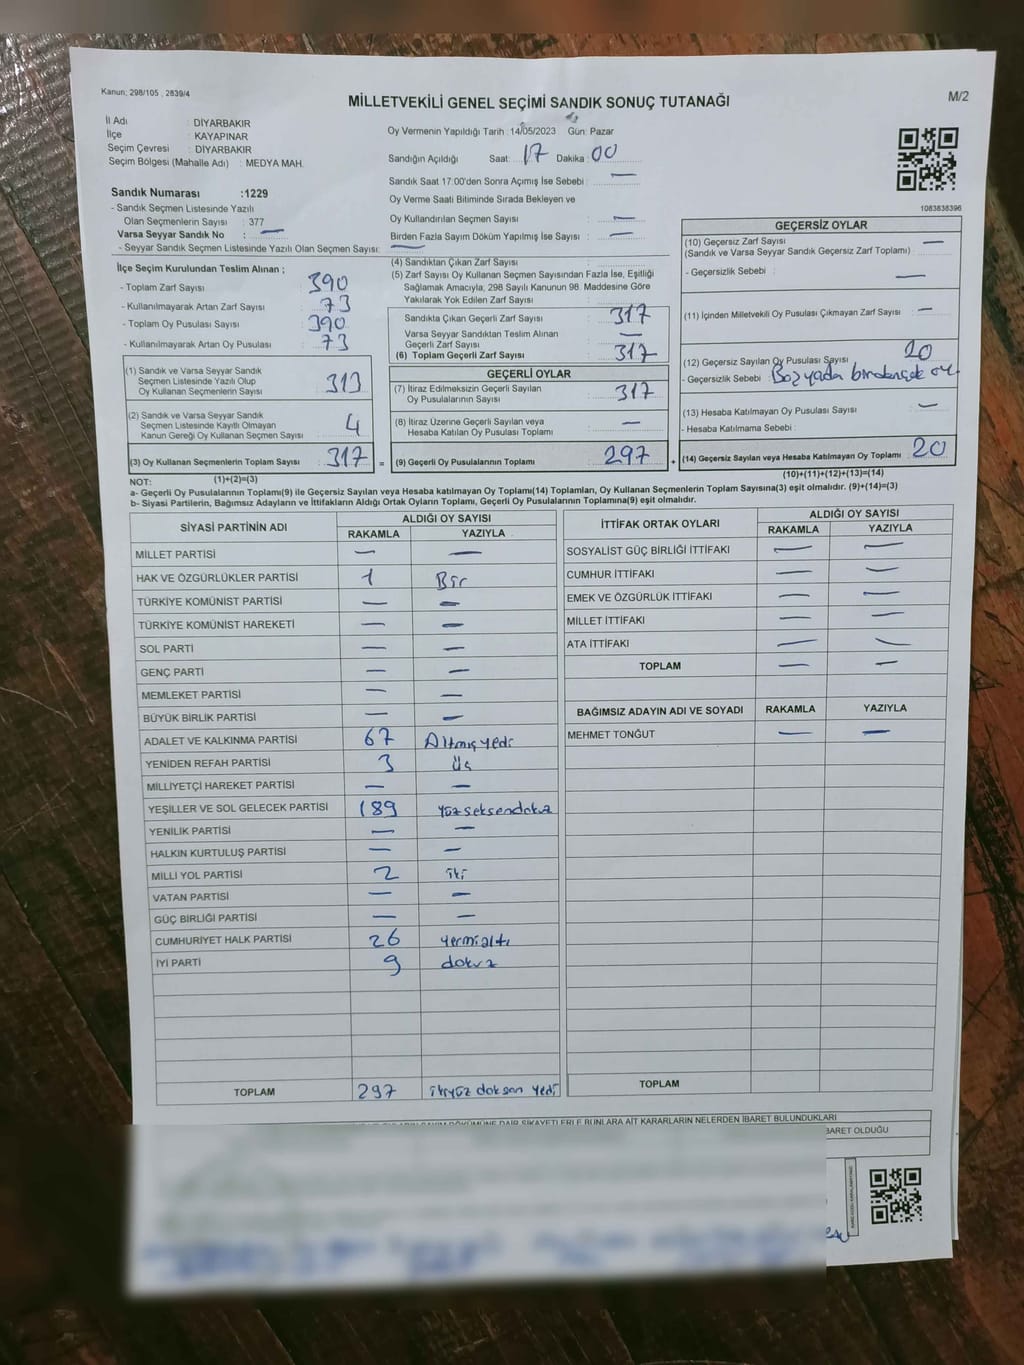 Kanun; 298/105 , 2839/4
MİLLETVEKİLİ GENEL SEÇİMİ SANDIK SONUÇ TUTANAĞI
M/2
İl Adı : DİYARBAKIR
İlçe : KAYAPINAR
Seçim Çevresi : DİYARBAKIR
Seçim Bölgesi (Mahalle Adı) : MEDYA MAH.
Sandık Numarası :1229
- Sandık Seçmen Listesinde Yazılı
Olan Seçmenlerin Sayısı : 377
Varsa Seyyar Sandık No : —
- Seyyar Sandık Seçmen Listesinde Yazılı Olan Seçmen Sayısı: —
İlçe Seçim Kurulundan Teslim Alınan ;
- Toplam Zarf Sayısı : 390
- Kullanılmayarak Artan Zarf Sayısı : 73
- Toplam Oy Pusulası Sayısı : 390
- Kullanılmayarak Artan Oy Pusulası : 73
(1) Sandık ve Varsa Seyyar Sandık
Seçmen Listesinde Yazılı Olup
Oy Kullanan Seçmenlerin Sayısı : 313
(2) Sandık ve Varsa Seyyar Sandık
Seçmen Listesinde Kayıtlı Olmayan
Kanun Gereği Oy Kullanan Seçmen Sayısı : 4
(3) Oy Kullanan Seçmenlerin Toplam Sayısı : 317 =
Oy Vermenin Yapıldığı Tarih : 14/05/2023 Gün: Pazar
Sandığın Açıldığı Saat: 17 Dakika : 00
Sandık Saat 17:00'den Sonra Açımış İse Sebebi : —
Oy Verme Saati Bitiminde Sırada Bekleyen ve
Oy Kullandırılan Seçmen Sayısı : —
Birden Fazla Sayım Döküm Yapılmış İse Sayısı : —
(4) Sandıktan Çıkan Zarf Sayısı :
(5) Zarf Sayısı Oy Kullanan Seçmen Sayısından Fazla İse, Eşitliği
Sağlamak Amacıyla, 298 Sayılı Kanunun 98. Maddesine Göre
Yakılarak Yok Edilen Zarf Sayısı :
Sandıkta Çıkan Geçerli Zarf Sayısı : 317
Varsa Seyyar Sandıktan Teslim Alınan
Geçerli Zarf Sayısı : —
(6) Toplam Geçerli Zarf Sayısı : 317
GEÇERLİ OYLAR
(7) İtiraz Edilmeksizin Geçerli Sayılan
Oy Pusulalarının Sayısı : 317
(8) İtiraz Üzerine Geçerli Sayılan veya
Hesaba Katılan Oy Pusulası Toplamı : —
(9) Geçerli Oy Pusulalarının Toplamı : 297 +
1083838396
GEÇERSİZ OYLAR
(10) Geçersiz Zarf Sayısı : —
(Sandık ve Varsa Seyyar Sandık Geçersiz Zarf Toplamı)
- Geçersizlik Sebebi : —
(11) İçinden Milletvekili Oy Pusulası Çıkmayan Zarf Sayısı : —
(12) Geçersiz Sayılan Oy Pusulası Sayısı : 20
- Geçersizlik Sebebi :
(13) Hesaba Katılmayan Oy Pusulası Sayısı : —
- Hesaba Katılmama Sebebi :
(14) Geçersiz Sayılan veya Hesaba Katılmayan Oy Toplamı : 20
NOT: (1)+(2)=(3)
(10)+(11)+(12)+(13)=(14)
a- Geçerli Oy Pusulalarının Toplamı(9) ile Geçersiz Sayılan veya Hesaba katılmayan Oy Toplamı(14) Toplamları, Oy Kullanan Seçmenlerin Toplam Sayısına(3) eşit olmalıdır. (9)+(14)=(3)
b- Siyasi Partilerin, Bağımsız Adayların ve İttifakların Aldığı Oyların Toplamı, Geçerli Oy Pusulalarının Toplamına(9) eşit olmalıdır.
SİYASİ PARTİNİN ADI ALDIĞI OY SAYISI
RAKAMLA YAZIYLA
MİLLET PARTİSİ — —
HAK VE ÖZGÜRLÜKLER PARTİSİ 1 Bir
TÜRKİYE KOMÜNİST PARTİSİ — —
TÜRKİYE KOMÜNİST HAREKETİ — —
SOL PARTİ — —
GENÇ PARTİ — —
MEMLEKET PARTİSİ — —
BÜYÜK BİRLİK PARTİSİ — —
ADALET VE KALKINMA PARTİSİ 67 Altmış yedi
YENİDEN REFAH PARTİSİ 3 üç
MİLLİYETÇİ HAREKET PARTİSİ — —
YEŞİLLER VE SOL GELECEK PARTİSİ 189 Yüz seksendokuz
YENİLİK PARTİSİ — —
HALKIN KURTULUŞ PARTİSİ — —
MİLLİ YOL PARTİSİ 2 iki
VATAN PARTİSİ — —
GÜÇ BİRLİĞİ PARTİSİ — —
CUMHURİYET HALK PARTİSİ 26 Yermialtı
İYİ PARTİ 9 dokuz
TOPLAM 297 ikiyüz doksan yedi
İTTİFAK ORTAK OYLARI ALDIĞI OY SAYISI
RAKAMLA YAZIYLA
SOSYALİST GÜÇ BİRLİĞİ İTTİFAKI — —
CUMHUR İTTİFAKI — —
EMEK VE ÖZGÜRLÜK İTTİFAKI — —
MİLLET İTTİFAKI — —
ATA İTTİFAKI — —
TOPLAM — —
BAĞIMSIZ ADAYIN ADI VE SOYADI RAKAMLA YAZIYLA
MEHMET TONĞUT — —
TOPLAM
DÖKÜMÜNE DAİR ŞİKAYETLERLE BUNLARA AİT KARARLARIN NELERDEN İBARET BULUNDUKLARI
BARET OLDUĞU